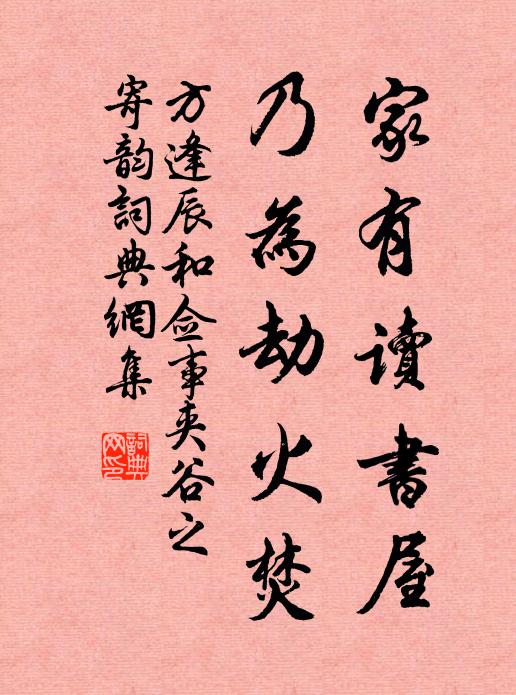 家有讀書屋
乃為劫火焚
方逢辰和僉事夾谷之
寄韻詞典網集
詞典
网印